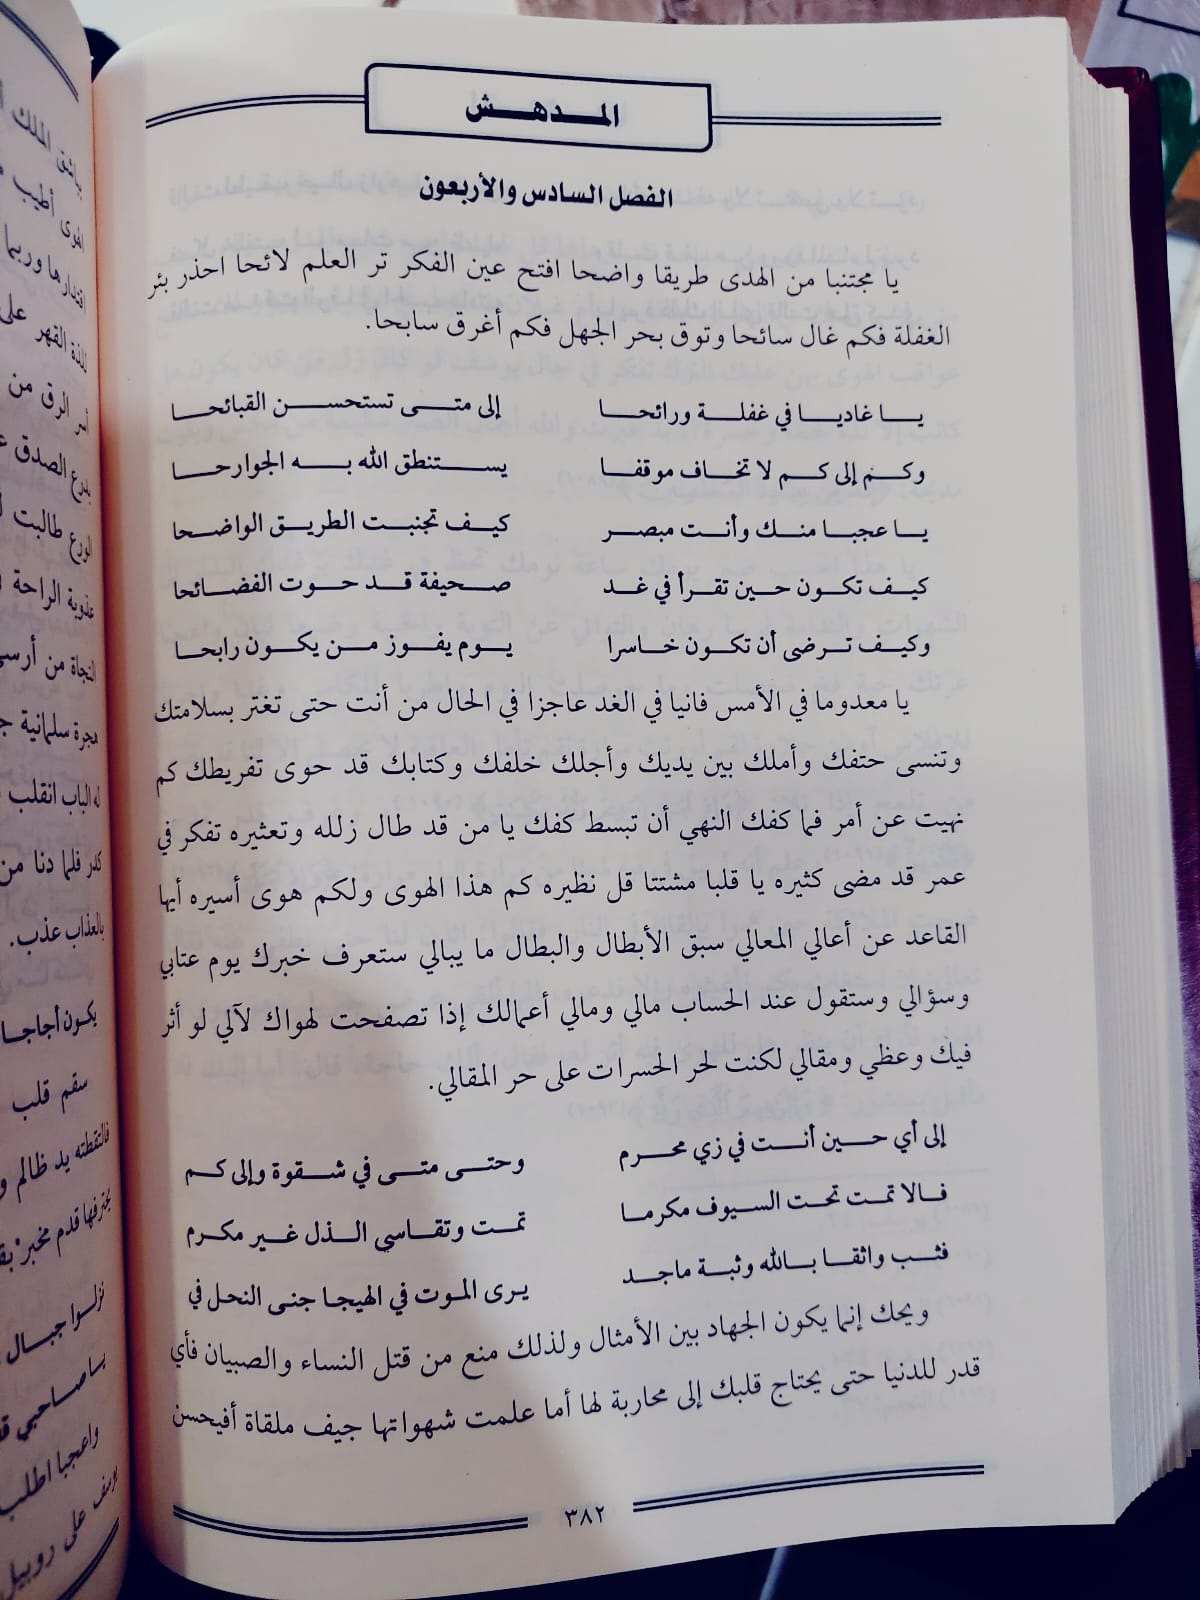 المدهش
الفصل السادس والأربعون
يا مجتنبا من الهدى طريقا واضحا افتح عين الفكر تر العلم لائحا احذر بئر
الغفلة فكم غال سائحا وتوق بحر الجهل فكم أغرق سابحا.
يا غاديا في غفلة ورائحا إلى متى تستحسن القبائحا
وكم إلى كم لا تخاف موقفا يستنطق الله به الجوارحا
يا عجبا منك وأنت مبصر كيف تجنبت الطريق الواضحا
كيف تكون حين تقرأ في غد صحيفة قد حوت الفضائحا
وكيف ترضى أن تكون خاسرا يوم يفوز من يكون رابحا
يا معدوما في الأمس فانيا في الغد عاجزا في الحال من أنت حتى تغتر بسلامتك
وتنسى حتفك وأملك بين يديك وأجلك خلفك وكتابك قد حوى تفريطك كم
نهيت عن أمر فما كفك النهي أن تبسط كفك يا من قد طال زلله وتعثيره تفكر في
عمر قد مضى كثيره يا قلبا مشتتا قل نظيره كم هذا الهوى ولكم هوى أسيره أيها
القاعد عن أعالي المعالي سبق الأبطال والبطال ما يبالي ستعرف خبرك يوم عتابي
وسؤالي وستقول عند الحساب مالي ومالي أعمالك إذا تصفحت لهواك لآلي لو أثر
فيك وعظي ومقالي لكنت لحر الحسرات على حر المقالي.
إلى أي حين أنت في زي محرم وحتى متى في شقوة وإلى كم
فالا تمت تحت السيوف مكرما تمت وتقاسي الذل غير مكرم
فثب واثقا بالله وثبة ماجد يرى الموت في الهيجا جنى النحل في
ويحك إنما يكون الجهاد بين الأمثال ولذلك منع من قتل النساء والصبيان فأي
قدر للدنيا حتى يحتاج قلبك إلى محاربة لها أما علمت شهواتها جيف ملقاة أفيحسن
٣٨٢